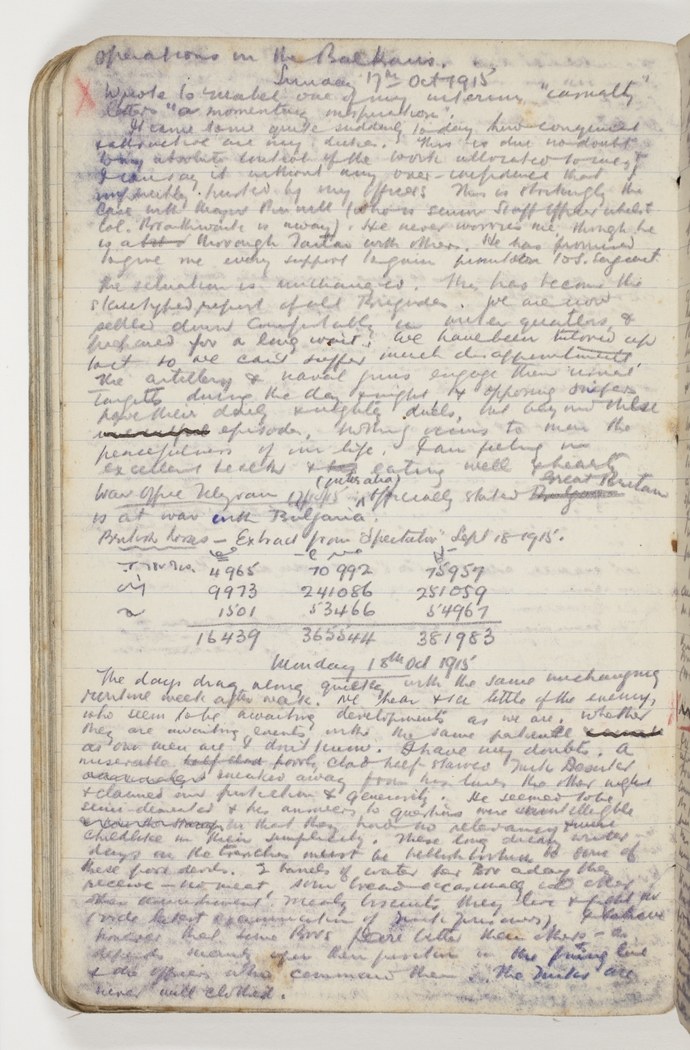 operations in the Balkans.
Sunday 17th Oct 1915
X Wrote to Mabel one of my interim "casualty"
letters "a momentary inspiration".
It came to me quite suddenly to-day how congenial
& attractive are my duties. This is due no doubt
to my absolute control of the work allocated to me, &
I can say it without any over-confidence that I
implicitly trusted by my officers. This is strikingly the
case with Major (who is senior Staff Officer whilst
Col. Braithwaite is away). He never worries me, though he
is a thorough Tartar with others. He has promised
to give me every support to gain promotion to S. Sergeant
The situation is unchanged. This has become the
stereotyped report of all Brigades. We are now
settled down comfortably in winter quarters, &
prepared for a long wait. We have been tutored up
to it so we can't suffer much disappointment.
The artillery & naval guns engage their usual
targets during the day & night & opposing snipers
have their daily & nightly duels, but beyond these
episodes, nothing occurs to mar the
peacefulness of our life. I am feeling in
excellent health & eating well & hearty
War Office Telegram (inter alia) Officially stated Great Britain
is at war with Bulgaria.
British losses - Extract from Spectator Sept 18 1915.
4965 70992 75957
9973 241086 251059
1501 53466 54967
16439 365544 381983
Monday 18th Oct 1915
The days drag along quietly with the same unchanging
routine week after week. We hear & see little of the enemy,
who seem to be awaiting developments as we are. Whether
they are awaiting events with the same patience
as our men are I don't know. I have my doubts. A
miserable poorly clad half-starved Turk Deserter
sneaked away from his lines the other night
& claimed our protection & generosity. He seemed to be
semi-demented & his answers to questions were unintelligible
in that they had no relevancy & were
childlike in their simplicity. These long dreary winter
days in the trenches must be hellish torture to some of
these poor devils. 2 barrels of water per Bn a day they
receive - no meat, some bread occasionally
other nourishment. Mealy biscuits they live & fight on
(vide latest examination of Turk prisoners), I believe
however that some Bns fare better than others - it
depends mainly upon their position in the firing line
& the officers who command them. The Turks are
never well clothed.